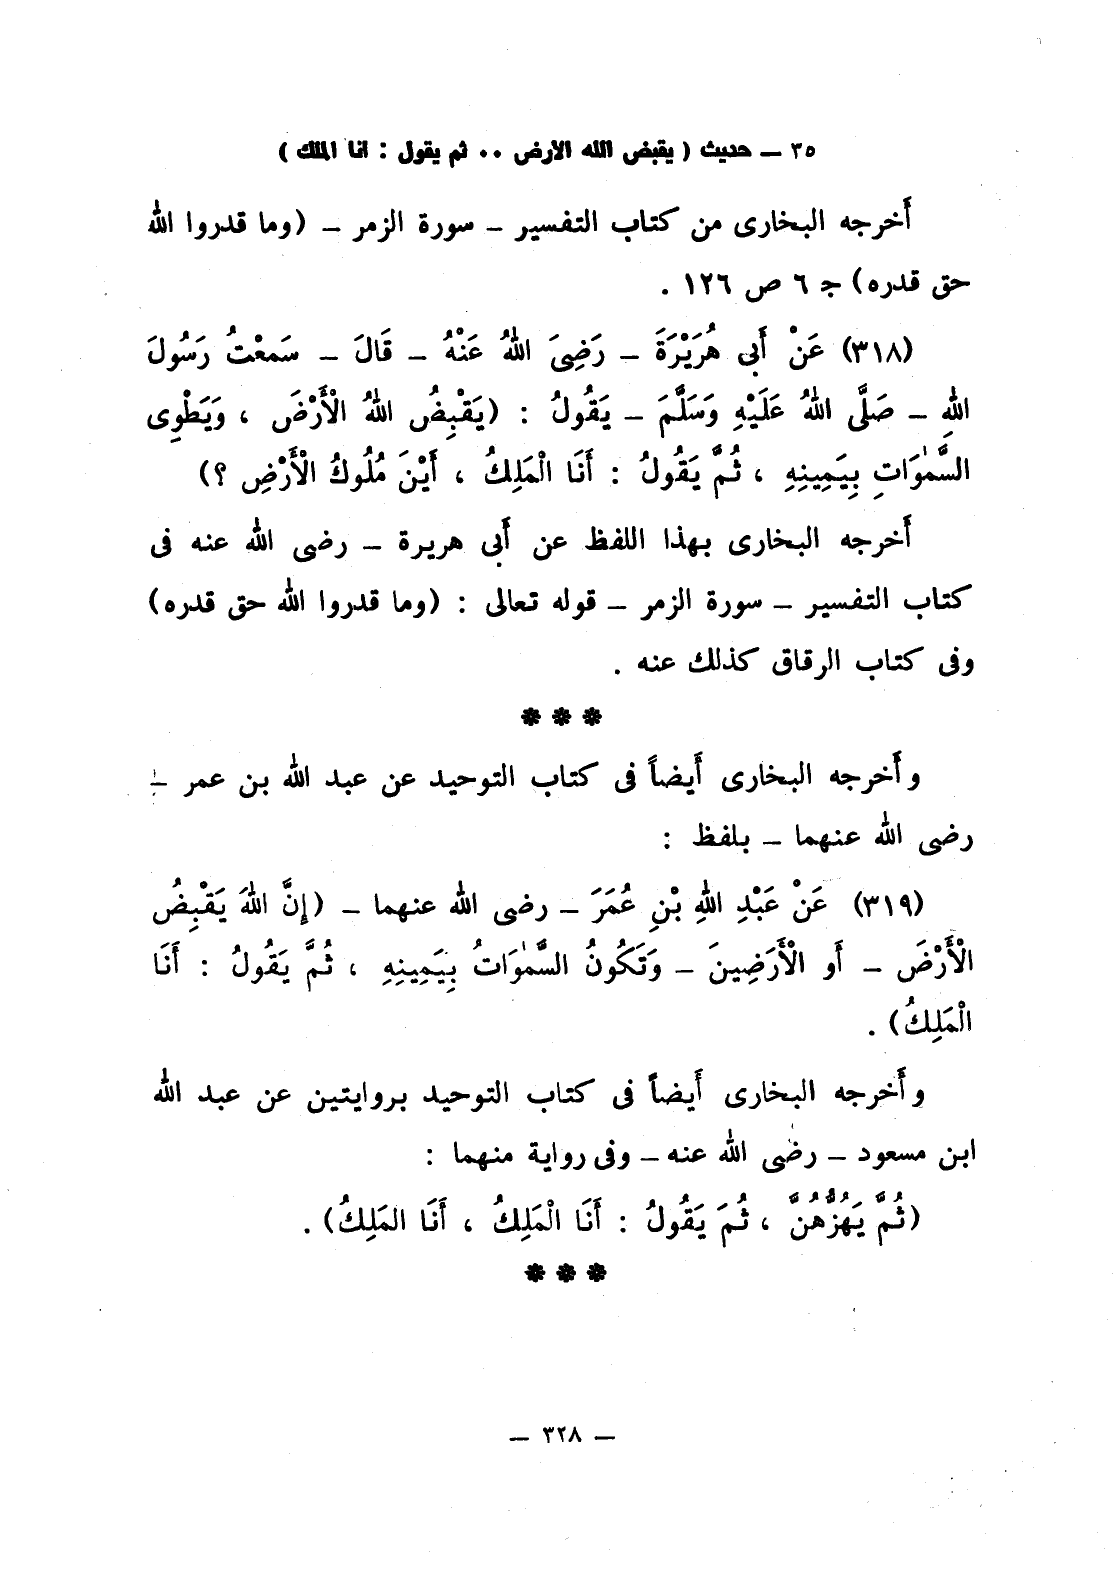 ٣٥ ــ حديث ( يقبض الله الأرض ٠٠ ثم يقول : أنا الملك )
أخرجه البخارى من كتاب التفسير ــ سورة الزمر ــ (وما قدروا الله
حق قدره) جـ ٦ ص ١٢٦ .
(٣١٨) عَنْ أَبِى هُرَيْرَةَ ــ رَضِىَ اللهُ عَنْهُ ــ قَالَ ــ سَمعْتُ رَسُولَ
اللهِ ــ صَلَّى اللهُ عَلَيْهِ وَسَلَّمَ ــ يَقُولُ : (يَقْبِضُ اللهُ الْأَرْضَ ، وَيَطْوِى
السَّمٰوَاتِ بِيَمِينِهِ ، ثُمَّ يَقُولُ : أَنَا الْمَلِكُ ، أَيْنَ مُلُوكُ الْأَرْضِ ؟)
أخرجه البخارى بهذا اللفظ عن أبى هريرة ــ رضى الله عنه فى
كتاب التفسير ــ سورة الزمر ــ قوله تعالى : (وما قدروا الله حق قدره)
وفى كتاب الرقاق كذلك عنه .
* * *
وأخرجه البخارى أيضاً فى كتاب التوحيد عن عبد الله بن عمر ــ
رضى الله عنهما ــ بلفظ :
(٣١٩) عَنْ عَبْدِ اللهِ بْنِ عُمَرَ ــ رضى الله عنهما ــ (إِنَّ اللهَ يَقْبِضُ
الْأَرْضَ ــ أَو الْأَرَضِينَ ــ وَتَكُونُ السَّمٰوَاتُ بِيَمِينِهِ ، ثُمَّ يَقُولُ : أَنَا
الْمَلِكُ) .
وأخرجه البخارى أيضاً فى كتاب التوحيد بروايتين عن عبد الله
ابن مسعود ــ رضى الله عنه ــ وفى رواية منهما :
(ثُمَّ يَهُزُّهُنَّ ، ثُمَ يَقُولُ : أَنَا الْمَلِكُ ، أَنَا المَلِكُ) .
* * *
ــ ٣٢٨ ــ